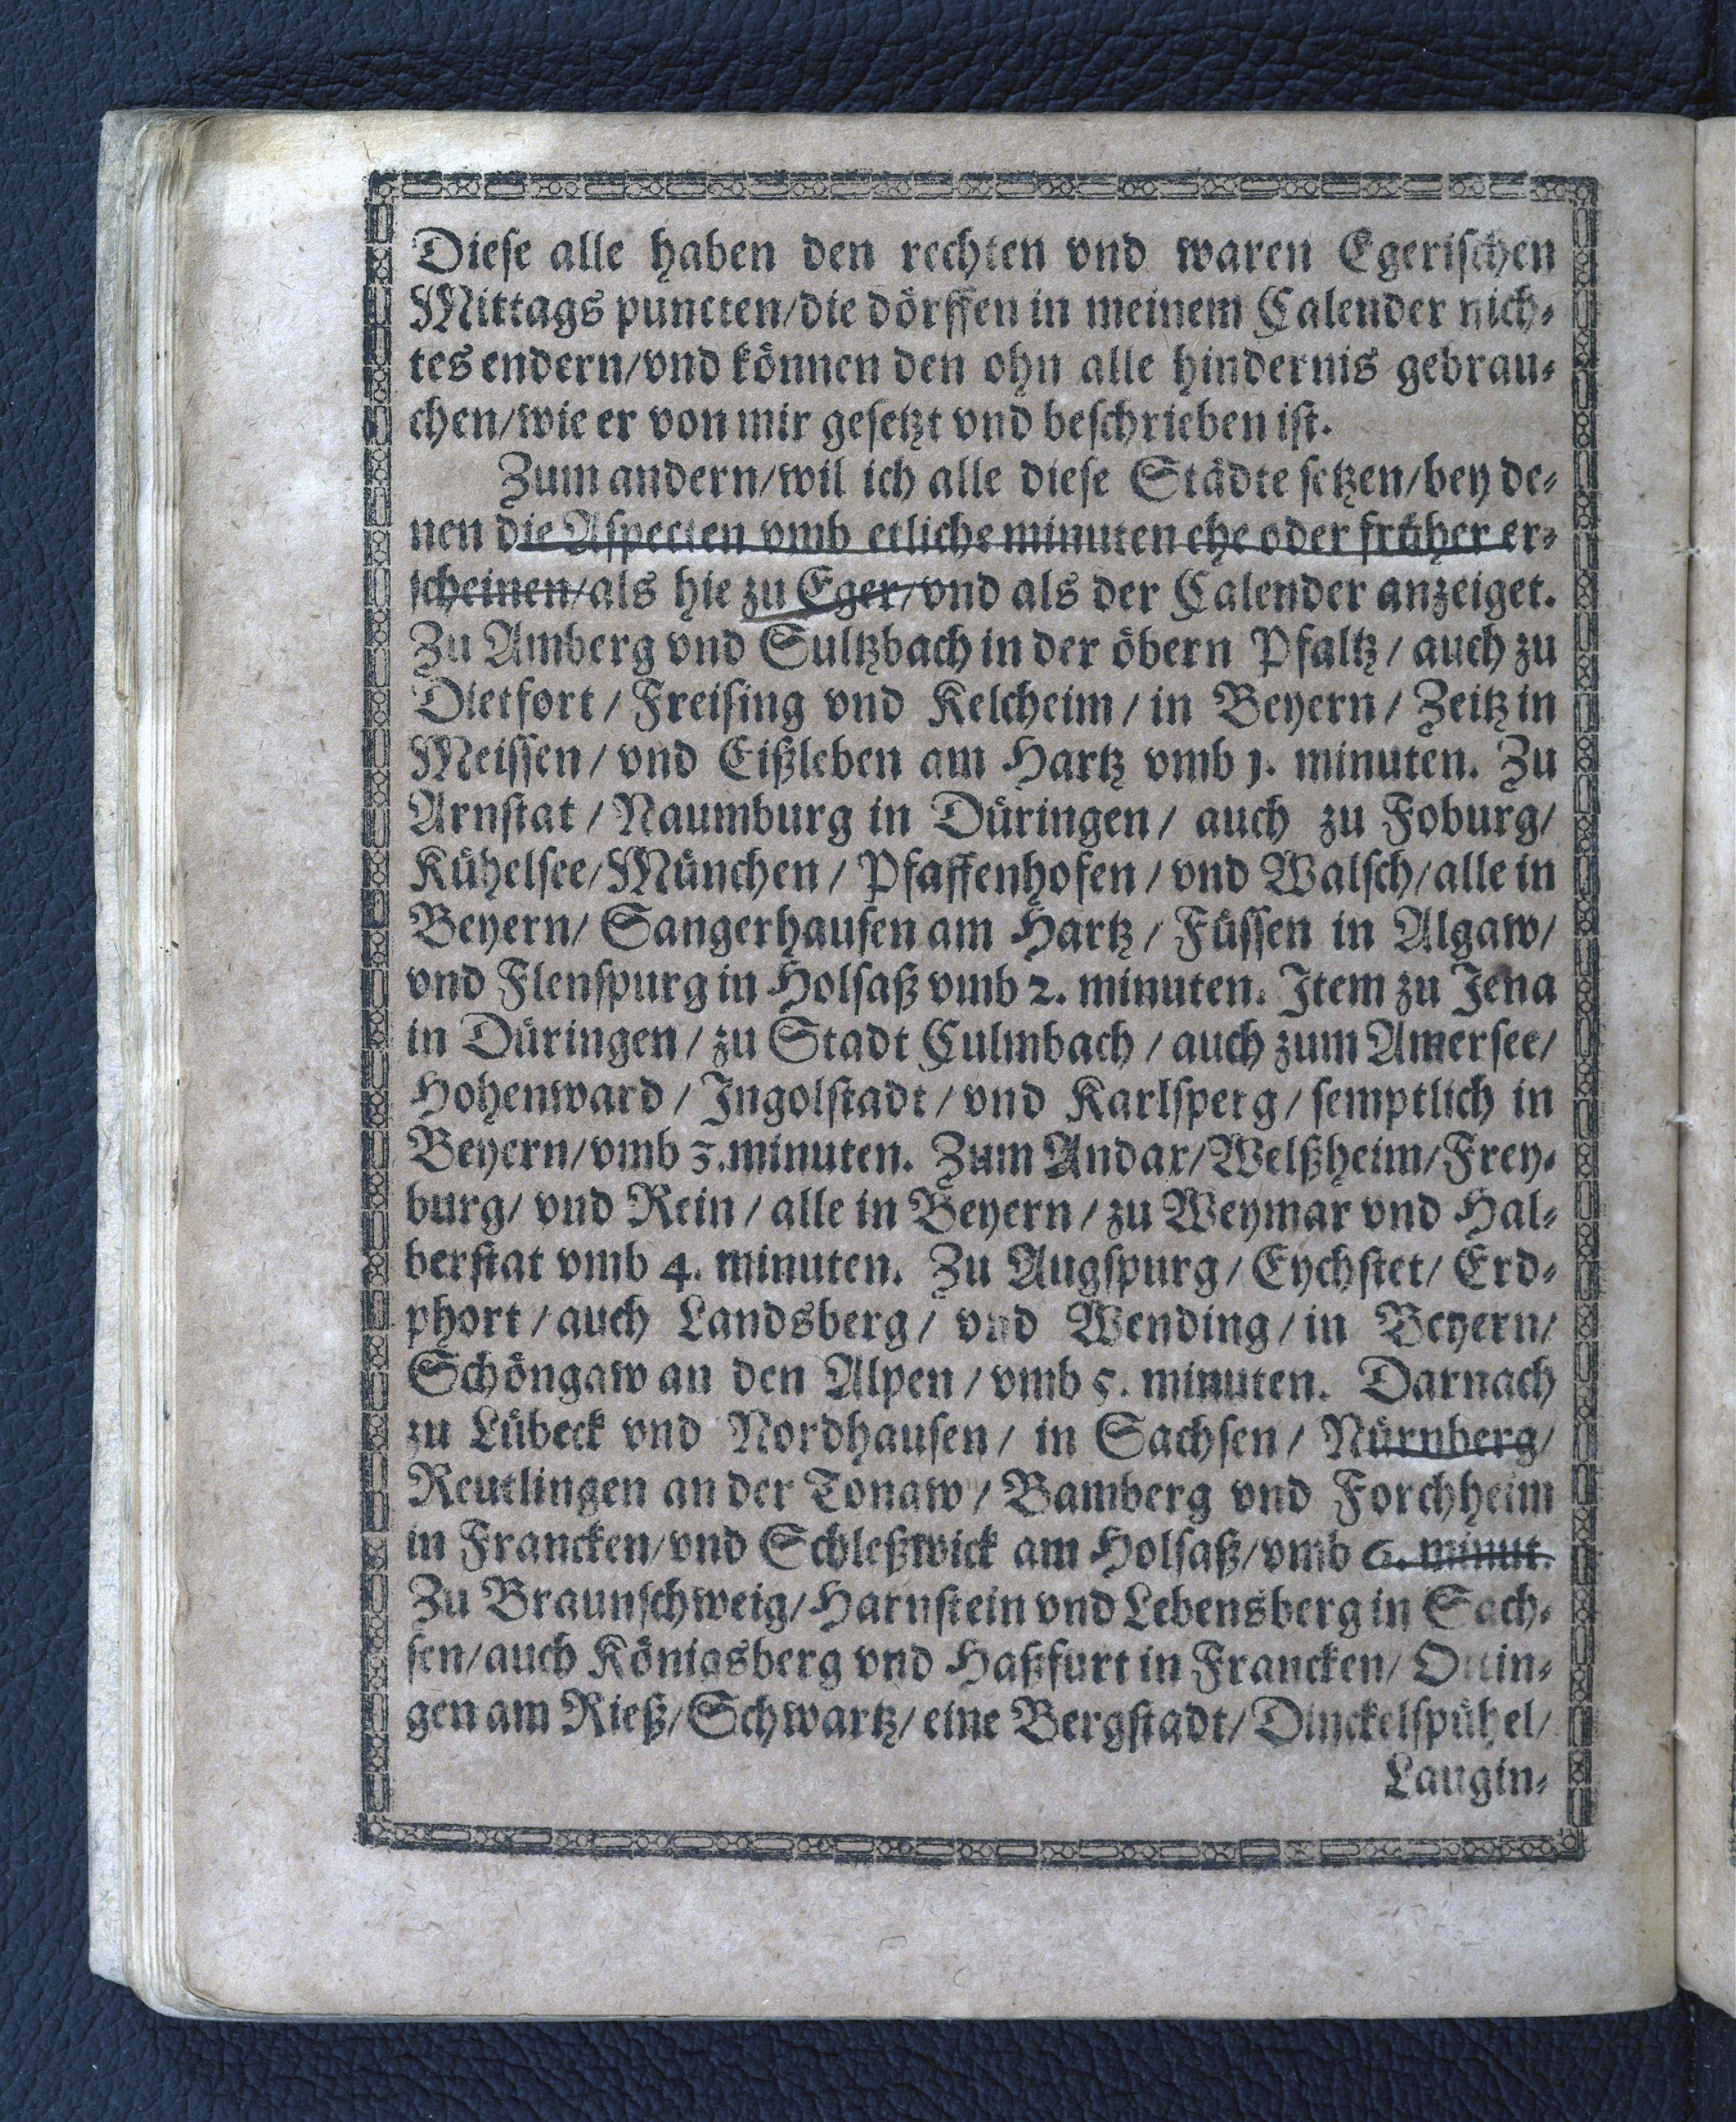 Diese alle haben den rechten vnd waren Egerischen
Mittags puncten/die dörffen in meinem Calender nich-
tes endern/vnd können den ohn alle hindernis gebrau-
chen/wie er von mir gesetzt vnd beschrieben ist.
Zum andern/wil ich alle diese Städte setzen/bey de-
nen die Aspecten vmb etliche minuten ehe oder früher er-
scheinen/als hie zu Eger/vnd als der Calender anzeiget.
Zu Amberg vnd Sultzbach in der öbern Pfaltz/ auch zu
Dietfort/ Freising vnd Kelcheim/ in Beyern/ Zeitz in
Meissen/ vnd Eißleben am Hartz vmb 1. minuten. Zu
Arnstat/ Naumburg in Düringen/ auch zu Foburg/
Kühelsee/ München/ Pfaffenhofen/ vnd Walsch/ alle in
Beyern/ Sangerhausen am Hartz/ Füssen in Algaw/
vnd Flenspurg in Holsaß vmb 2. minuten. Item zu Jena
in Düringen/ zu Stadt Culmbach/ auch zum Amersee/
Hohenward/ Ingolstadt/ vnd Karlsperg/ semptlich in
Beyern/ vmb 3. minuten. Zum Andar/ Welßheim/ Frey-
burg/ vnd Rein/ alle in Beyern/ zu Weymar vnd Hal-
berstat vmb 4. minuten. Zu Augspurg/ Eychstet/ Erd-
phort/ auch Landsberg/ vnd Wending/ in Beyern/
Schöngaw an den Alpen/ vmb 5. minuten. Darnach
zu Lübeck vnd Nordhausen/ in Sachsen/ Nürnberg/
Reutlingen an der Tonaw/ Bamberg vnd Forchheim
in Francken/ vnd Schleßwick am Holsaß/ vmb 6. minut.
Zu Braunschweig/ Harnstein vnd Lebensberg in Sach-
sen/ auch Königsberg vnd Haßfurt in Francken/ Ottin-
gen am Rieß/ Schwartz/ eine Bergstadt/ Dinckelspühel/
Laugin-